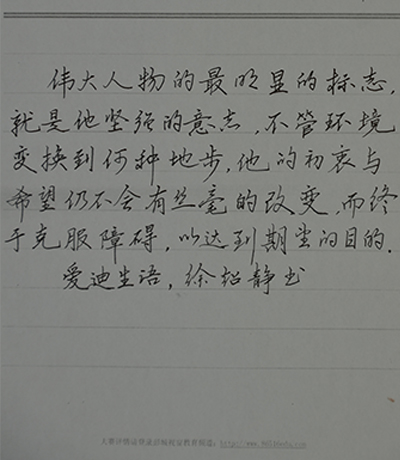 伟大人物的最明显的标志,
就是他坚强的意志,不管环境
变换到何种地步,他的初衷与
希望仍不会有丝毫的改变,而终
于克服障碍,以达到期望的目的.
爱迪生语,徐韶静书